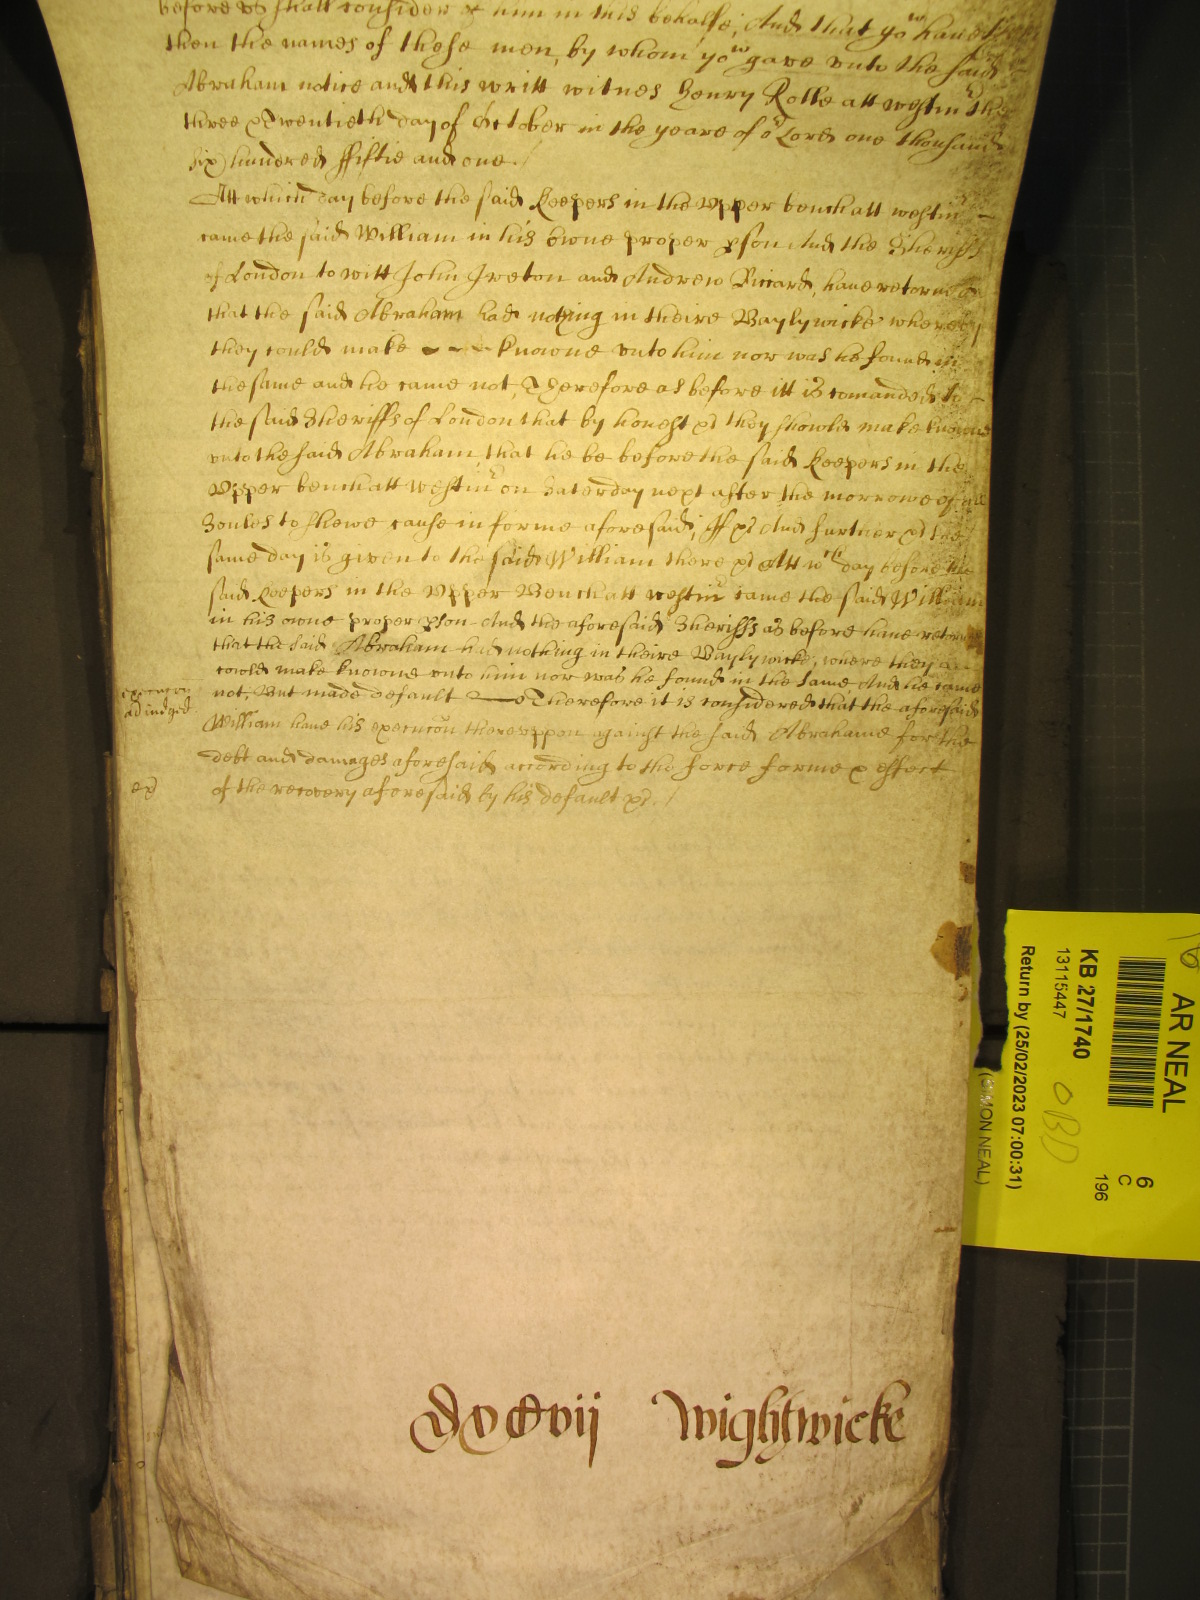 before us shall consider of him in this behalfe, And that yow have there
then the names of those men, by whom yow gave unto the said
Abraham notice and this writt witnes Henry Rolle att westm the
three & twentieth day of October in the yeare of or Lord one thousand
six hundred fiftie and one./
Att which day before the said Keepers in the upper bench att westm
came the said William in his owne proper pson And the Sheriffs
of London to witt John Ireton and Andrew Riccard, have retorned
that the said Abraham had nothing in theire Baylywicke whereby
they could make knowne unto him nor was he found in
the same and he came not, Therefore as before itt is comanded to
the said Sheriffs of London that by honest &c they should make knowne
unto the said Abraham, that he be before the said Keepers in the
Upper bench att westm on Saterday next after the morrowe of all
Soules to shewe cause in forme aforesaid, If &c And further &c the
same day is given to the said William there &c Att wch day before the
said Keepers in the Upper Bench att westm came the said William
in his owne proper pson And the aforesaid Sheriffs as before have retorned
that the said Abraham had nothing in theire Baylywicke, where they
could make knowne unto him nor was he found in the same, And he came
not, But made default Therefore it is considered that the aforesaid
execucon
adiudged
William have his execucon thereuppon against the said Abrahame for the
debt and damages aforesaid according to the force forme & effect
ex
of the recovery aforesaid by his default &c./
Wightwicke
AR NEAL
6
C
196
KB 27/1740
13115447
OBD
Return by (25/02/2023 07:00:31)
(SIMON NEAL)